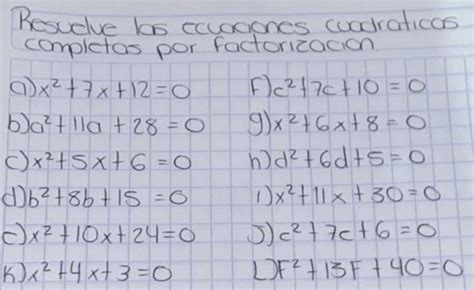 Resuelve las ecuaciones cuadraticas
completas por factorizacion.
a) x² + 7x + 12 = 0
b) a² + 11a + 28 = 0
c) x² + 5x + 6 = 0
d) b² + 8b + 15 = 0
e) x² + 10x + 24 = 0
K) x² + 4x + 3 = 0
F) c² + 7c + 10 = 0
g) x² + 6x + 8 = 0
h) d² + 6d + 5 = 0
i) x² + 11x + 30 = 0
J) c² + 7c + 6 = 0
L) F² + 13F + 40 = 0